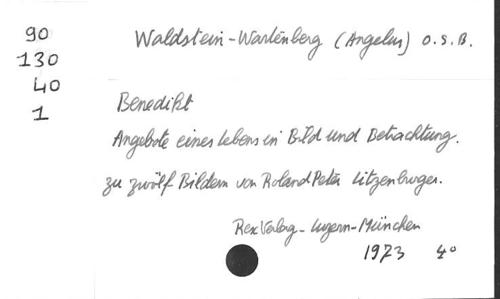 90
130
40
1
Waldstein-Wartenberg (Angelus) O.S.B.
Benedikt
Angebote eines Lebens in Bild und Betrachtung.
zu zwölf Bildern von Roland Peter Litzenburger.
Rex Verlag - Luzern-München
1973 4°